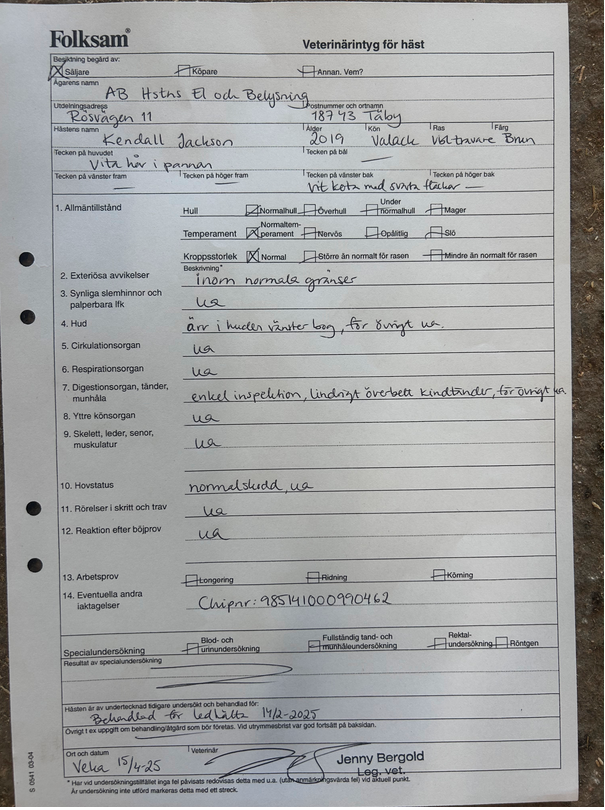 Folksam®
Veterinärintyg för häst
Besiktning begärd av:
Säljare Köpare Annan. Vem?
Ägarens namn
AB Hstns El och Belysning
Utdelningsadress Postnummer och ortnamn
Rösvägen 11 187 43 Täby
Hästens namn Ålder Kön Ras Färg
Kendall Jackson 2019 Valack Vbltravare Brun
Tecken på huvudet Tecken på bål
Vita hår i pannan —
Tecken på vänster fram Tecken på höger fram Tecken på vänster bak Tecken på höger bak
— — Vit kota med svarta fläckar —
1. Allmäntillstånd Hull Normalhull Överhull Under normalhull Mager
Temperament Normaltemperament Nervös Opålitlig Slö
Kroppsstorlek Normal Större än normalt för rasen Mindre än normalt för rasen
Beskrivning*
2. Exteriösa avvikelser inom normala gränser
3. Synliga slemhinnor och
palperbara lfk ua
4. Hud ärr i huden vänster bog, för övrigt ua.
5. Cirkulationsorgan ua
6. Respirationsorgan ua
7. Digestionsorgan, tänder,
munhåla enkel inspektion, lindrigt överbett kindtänder, för övrigt ua
8. Yttre könsorgan ua
9. Skelett, leder, senor,
muskulatur ua
10. Hovstatus normalskodd, ua
11. Rörelser i skritt och trav ua
12. Reaktion efter böjprov ua
13. Arbetsprov Longering Ridning Körning
14. Eventuella andra
iakttagelser Chipnr: 985141000990462
Specialundersökning Blod- och urinundersökning Fullständig tand- och munhåleundersökning Rektal-undersökning Röntgen
Resultat av specialundersökning
Hästen är av undertecknad tidigare undersökt och behandlad för:
Behandlad för ledhälta 14/2-2025
Övrigt t ex uppgift om behandling/åtgärd som bör företas. Vid utrymmesbrist var god fortsätt på baksidan.
Ort och datum Veterinär
15/4-25
Jenny Bergold
Leg. vet.
* Har vid undersökningstillfället inga fel påvisats redovisas detta med u.a. (utan anmärkningsvärda fel) vid aktuell punkt.
Är undersökning inte utförd markeras detta med ett streck.
S 0541 03-04